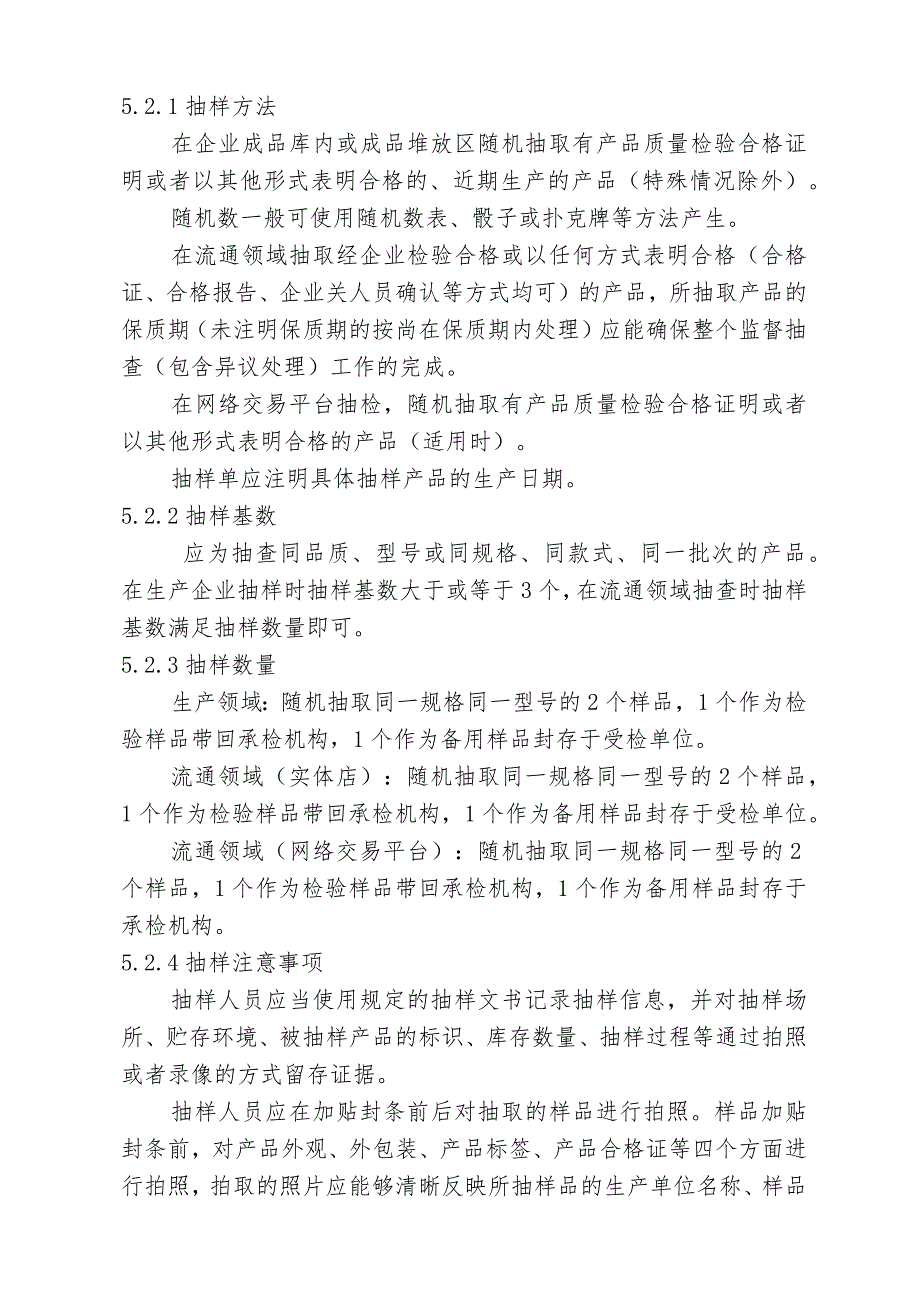 5.2.1抽样方法
在企业成品库内或成品堆放区随机抽取有产品质量检验合格证
明或者以其他形式表明合格的、近期生产的产品（特殊情况除外）。
随机数一般可使用随机数表、骰子或扑克牌等方法产生。
在流通领域抽取经企业检验合格或以任何方式表明合格（合格
证、合格报告、企业关人员确认等方式均可）的产品，所抽取产品的
保质期（未注明保质期的按尚在保质期内处理）应能确保整个监督抽
查（包含异议处理）工作的完成。
在网络交易平台抽检，随机抽取有产品质量检验合格证明或者
以其他形式表明合格的产品（适用时）。
抽样单应注明具体抽样产品的生产日期。
5.2.2抽样基数
应为抽查同品质、型号或同规格、同款式、同一批次的产品。
在生产企业抽样时抽样基数大于或等于3个，在流通领域抽查时抽样
基数满足抽样数量即可。
5.2.3抽样数量
生产领域：随机抽取同一规格同一型号的2个样品，1个作为检
验样品带回承检机构，1个作为备用样品封存于受检单位。
流通领域（实体店）：随机抽取同一规格同一型号的2个样品，
1个作为检验样品带回承检机构，1个作为备用样品封存于受检单位。
流通领域（网络交易平台）：随机抽取同一规格同一型号的2
个样品，1个作为检验样品带回承检机构，1个作为备用样品封存于
承检机构。
5.2.4抽样注意事项
抽样人员应当使用规定的抽样文书记录抽样信息，并对抽样场
所、贮存环境、被抽样产品的标识、库存数量、抽样过程等通过拍照
或者录像的方式留存证据。
抽样人员应在加贴封条前后对抽取的样品进行拍照。样品加贴
封条前，对产品外观、外包装、产品标签、产品合格证等四个方面进
行拍照，拍取的照片应能够清晰反映所抽样品的生产单位名称、样品